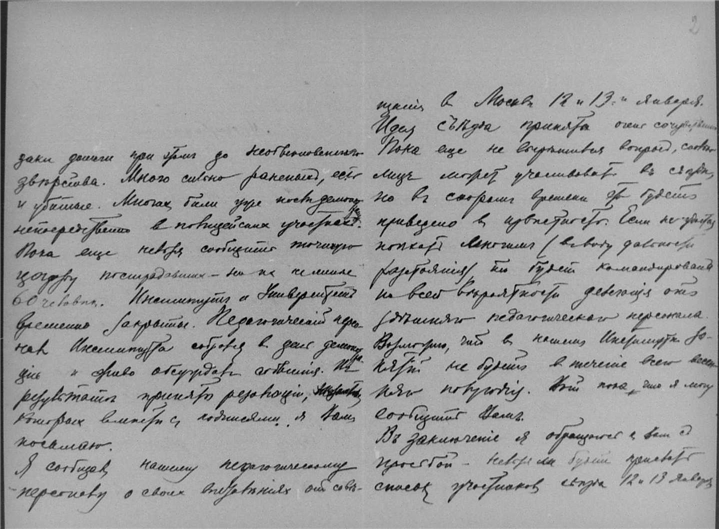 2
заки дошли при этом до необыкновенного
звѣрства. Много сильно раненыхъ, есть
и убитые. Многих били уже послѣ
непосредственно в полицейских участках.
Пока еще нельзя сообщить точную
цифру пострадавших – но не менѣе
60 человѣк. Институтъ и Университетъ
временно закрыты. Педагогическій персо-
налъ Института собрался в день
и живо обсуждал событія. Въ
результатѣ принята резолюція,
которую вместѣ с подписями я Вам
посылаю.
Я сообщил нашему педагогическому
персоналу о своих впечатлѣніях от совѣ-
щанія в Москвѣ 12 и 13го января.
Идея съѣзда принята очень сочувственно
Пока еще не вопросъ, сколько
лиц может участвовать въ съѣздѣ
но в скором времени это будетъ
приведено в извѣстность. Если не удастся
поехать многим (ввиду дальности
разстоянія) то будет командирована
по всей вѣроятности делегація отъ
педагогическаго персонала.
Возможно, что в нашем Институтѣ за-
нятій не будетъ в теченіе всего весен-
няго полугодія. Вот пока, что я могу
сообщить Вамъ.
Въ заключеніе я обращаюсь к вам с
просьбой – нельзя ли будет прислать
список участников съѣзда 12 и 13 января